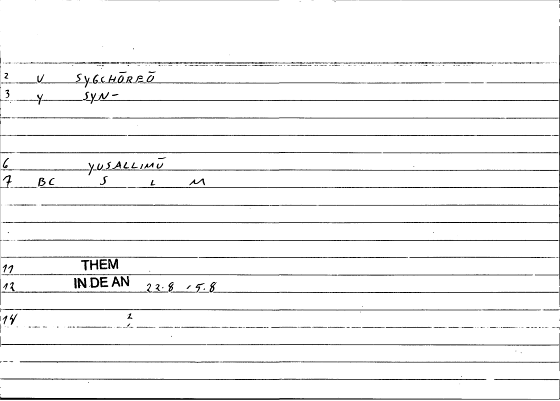 2 V SYGCHŌREŌ
3 Y SYN-
6 YUSALLIMŪ
7 BC S L M
11 THEM
12 IN DE AN 22.8 15.8
14 2